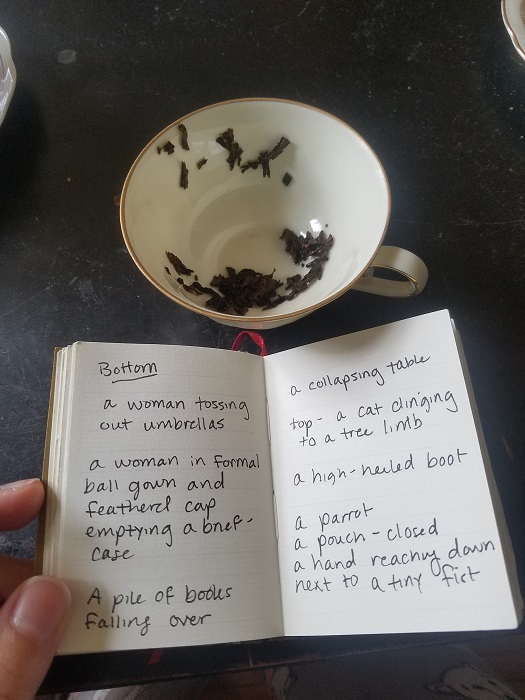 Bottom
a woman tossing
out umbrellas
a woman in formal
ball gown and
feathered cap
emptying a brief-
case
A pile of books
falling over
a collapsing table
top - a cat clinging
to a tree limb
a high-heeled boot
a parrot
a pouch - closed
a hand reaching down
next to a tiny fist